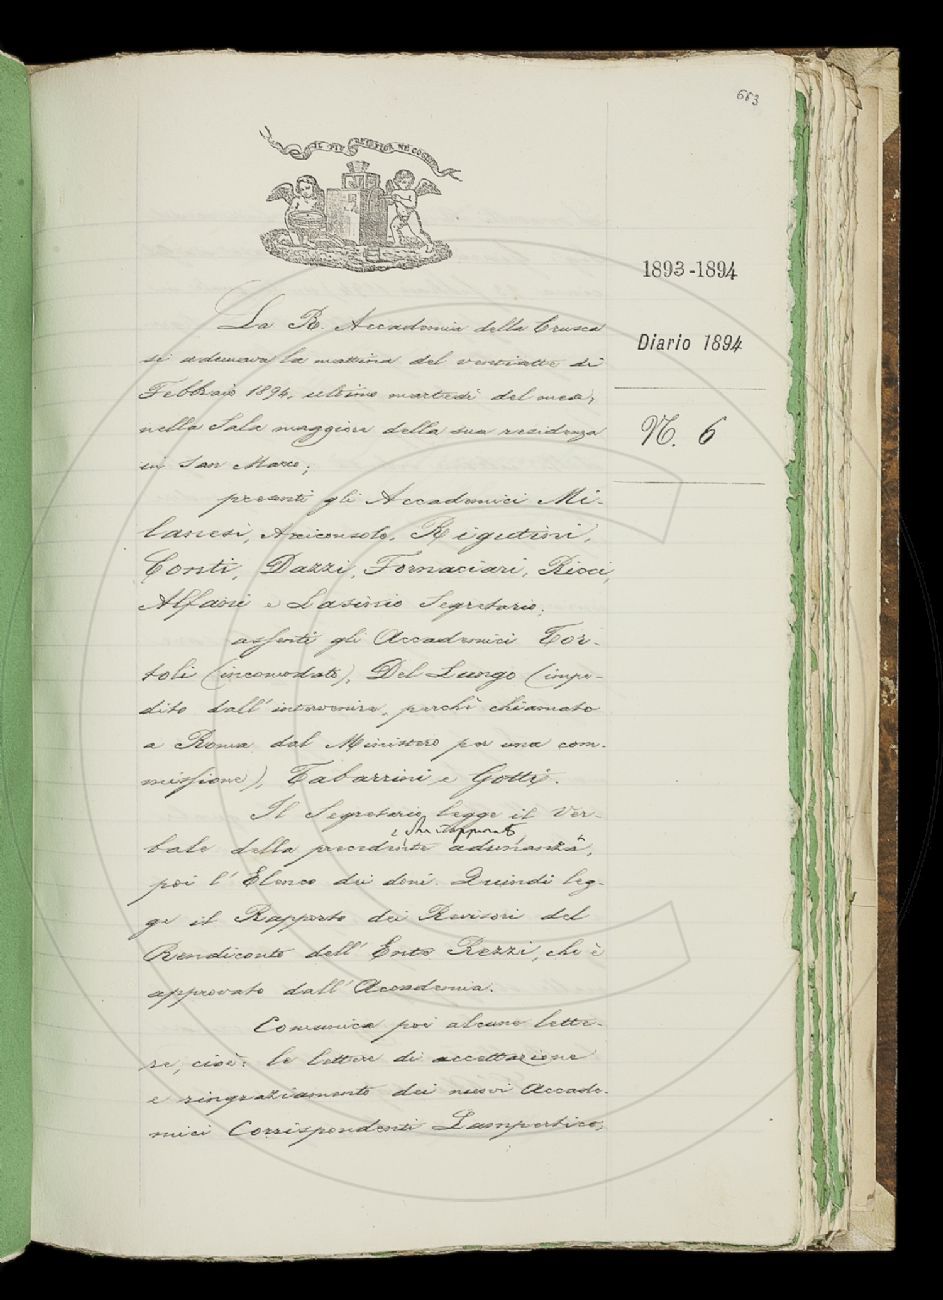 663
IL PIV BEL FIOR NE COGLIE
1893-1894
Diario 1894
N. 6
La R. Accademia della Crusca
si adunava la mattina del ventisette di
Febbraio 1894, ultimo martedì del mese,
nella Sala maggiore della sua residenza
in San Marco;
presenti gli Accademici Mi-
lanesi, Arciconsolo, Rigutini,
Conti, Dazzi, Fornaciari, Ricci,
Alfani e Lasinio Segretario;
assenti gli Accademici Tor-
toli (incomodato), Del Lungo (impe-
dito dall'intervenire, perchè chiamato
a Roma dal Ministero per una com-
missione), Tabarrini e Gotti.
Il Segretario legge il Ver-
bale della precedente adunanza,
poi l'Elenco dei doni. Quindi leg-
ge il Rapporto dei Revisori del
Rendiconto dell'Ente Rezzi, che è
approvato dall'Accademia.
Comunica poi alcune lette-
re, cioè: le lettere di accettazione
e ringraziamento dei nuovi Accade-
mici Corrispondenti Lampertico,